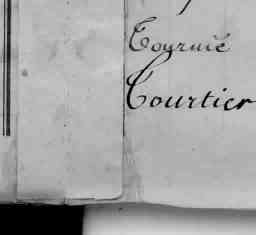 Tournié
Courtier